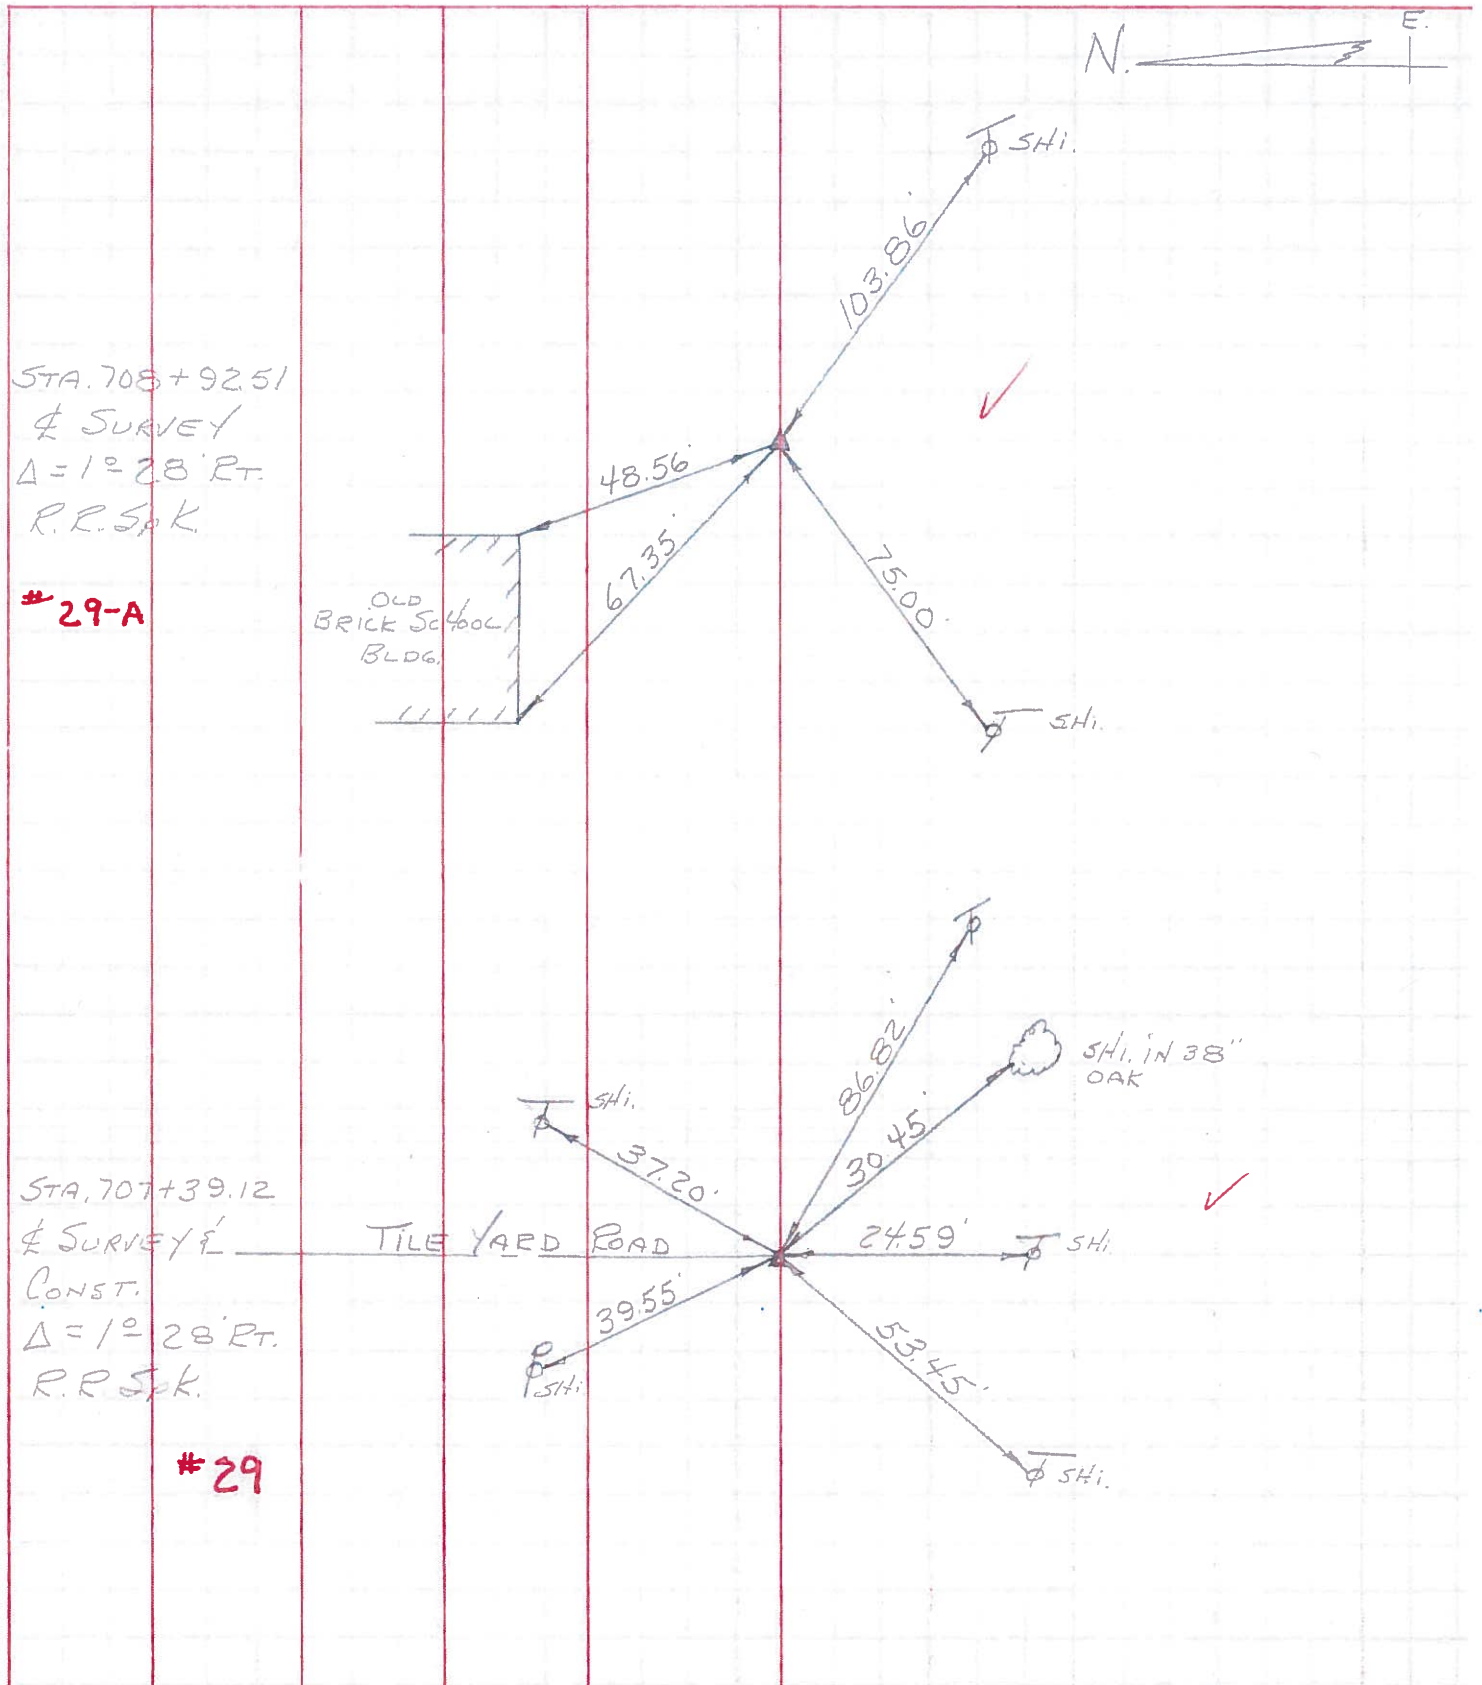 N.
E.
SHi.
103.86'
STA. 708+92.51
℄ SURVEY
Δ = 1° 28' RT.
R.R. SpK.
48.56'
67.35'
75.00'
#29-A
OLD
BRICK SCHOOL
BLDG.
SHi.
86.82'
SHi. iN 38"
OAK
SHi.
30.45'
37.20'
STA. 707+39.12
℄ SURVEY &
CONST.
Δ = 1° 28' RT.
R.R. SpK.
TILE YARD ROAD
24.59'
SHi.
39.55'
SHi.
53.45'
SHi.
#29